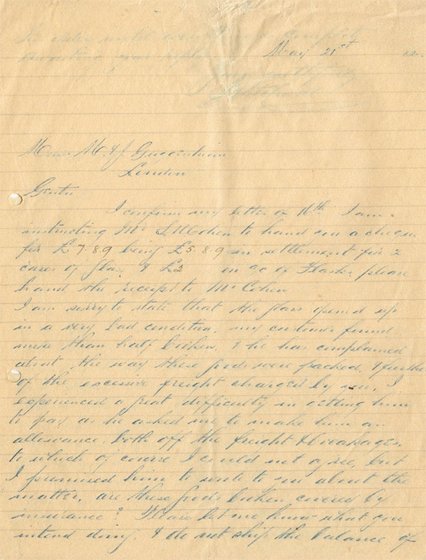 May 21st
Messrs M & J Guggenheim
London
Gents
I confirm my letter of 16th I am
instructing Mr S Cohen to hand you a cheque
for £7.8.9 being £5.8.9 in settlement for 2
cases of glass, & £2 on a/c of Flasks please
hand the receipt to Mr Cohen
I am sorry to state that the glass opened up
in a very bad condition, my customer found
more than half broken, & he has complained
about the way these goods were packed, & further
of the excessive freight charged by you, I
experienced a great difficulty in getting him
to pay as he asked me to make him an
allowance both off the freight & breakages
to which of course I could not agree, but
I promised him to write to you about the
matter, are these goods broken covered by
insurance? Please let me know what you
intend doing, & do not ship the balance of